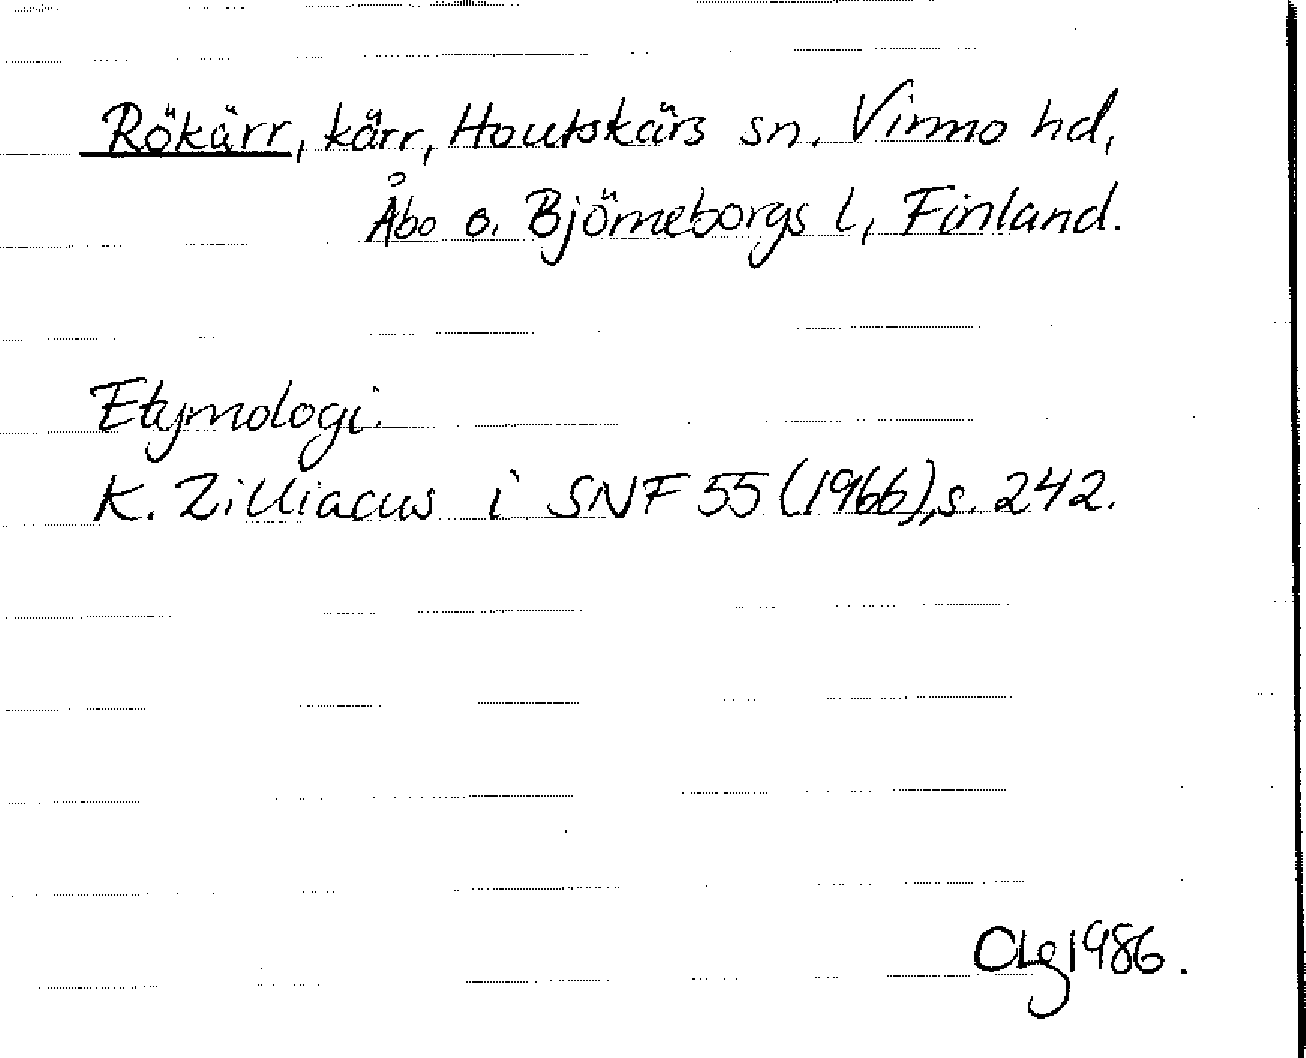 Rökärr, kärr, Houtskärs sn. Virmo hd,
Åbo o. Björneborgs l, Finland.
Etymologi.
K. Zilliacus i SNF 55 (1966), s. 242.
CLg 1986.